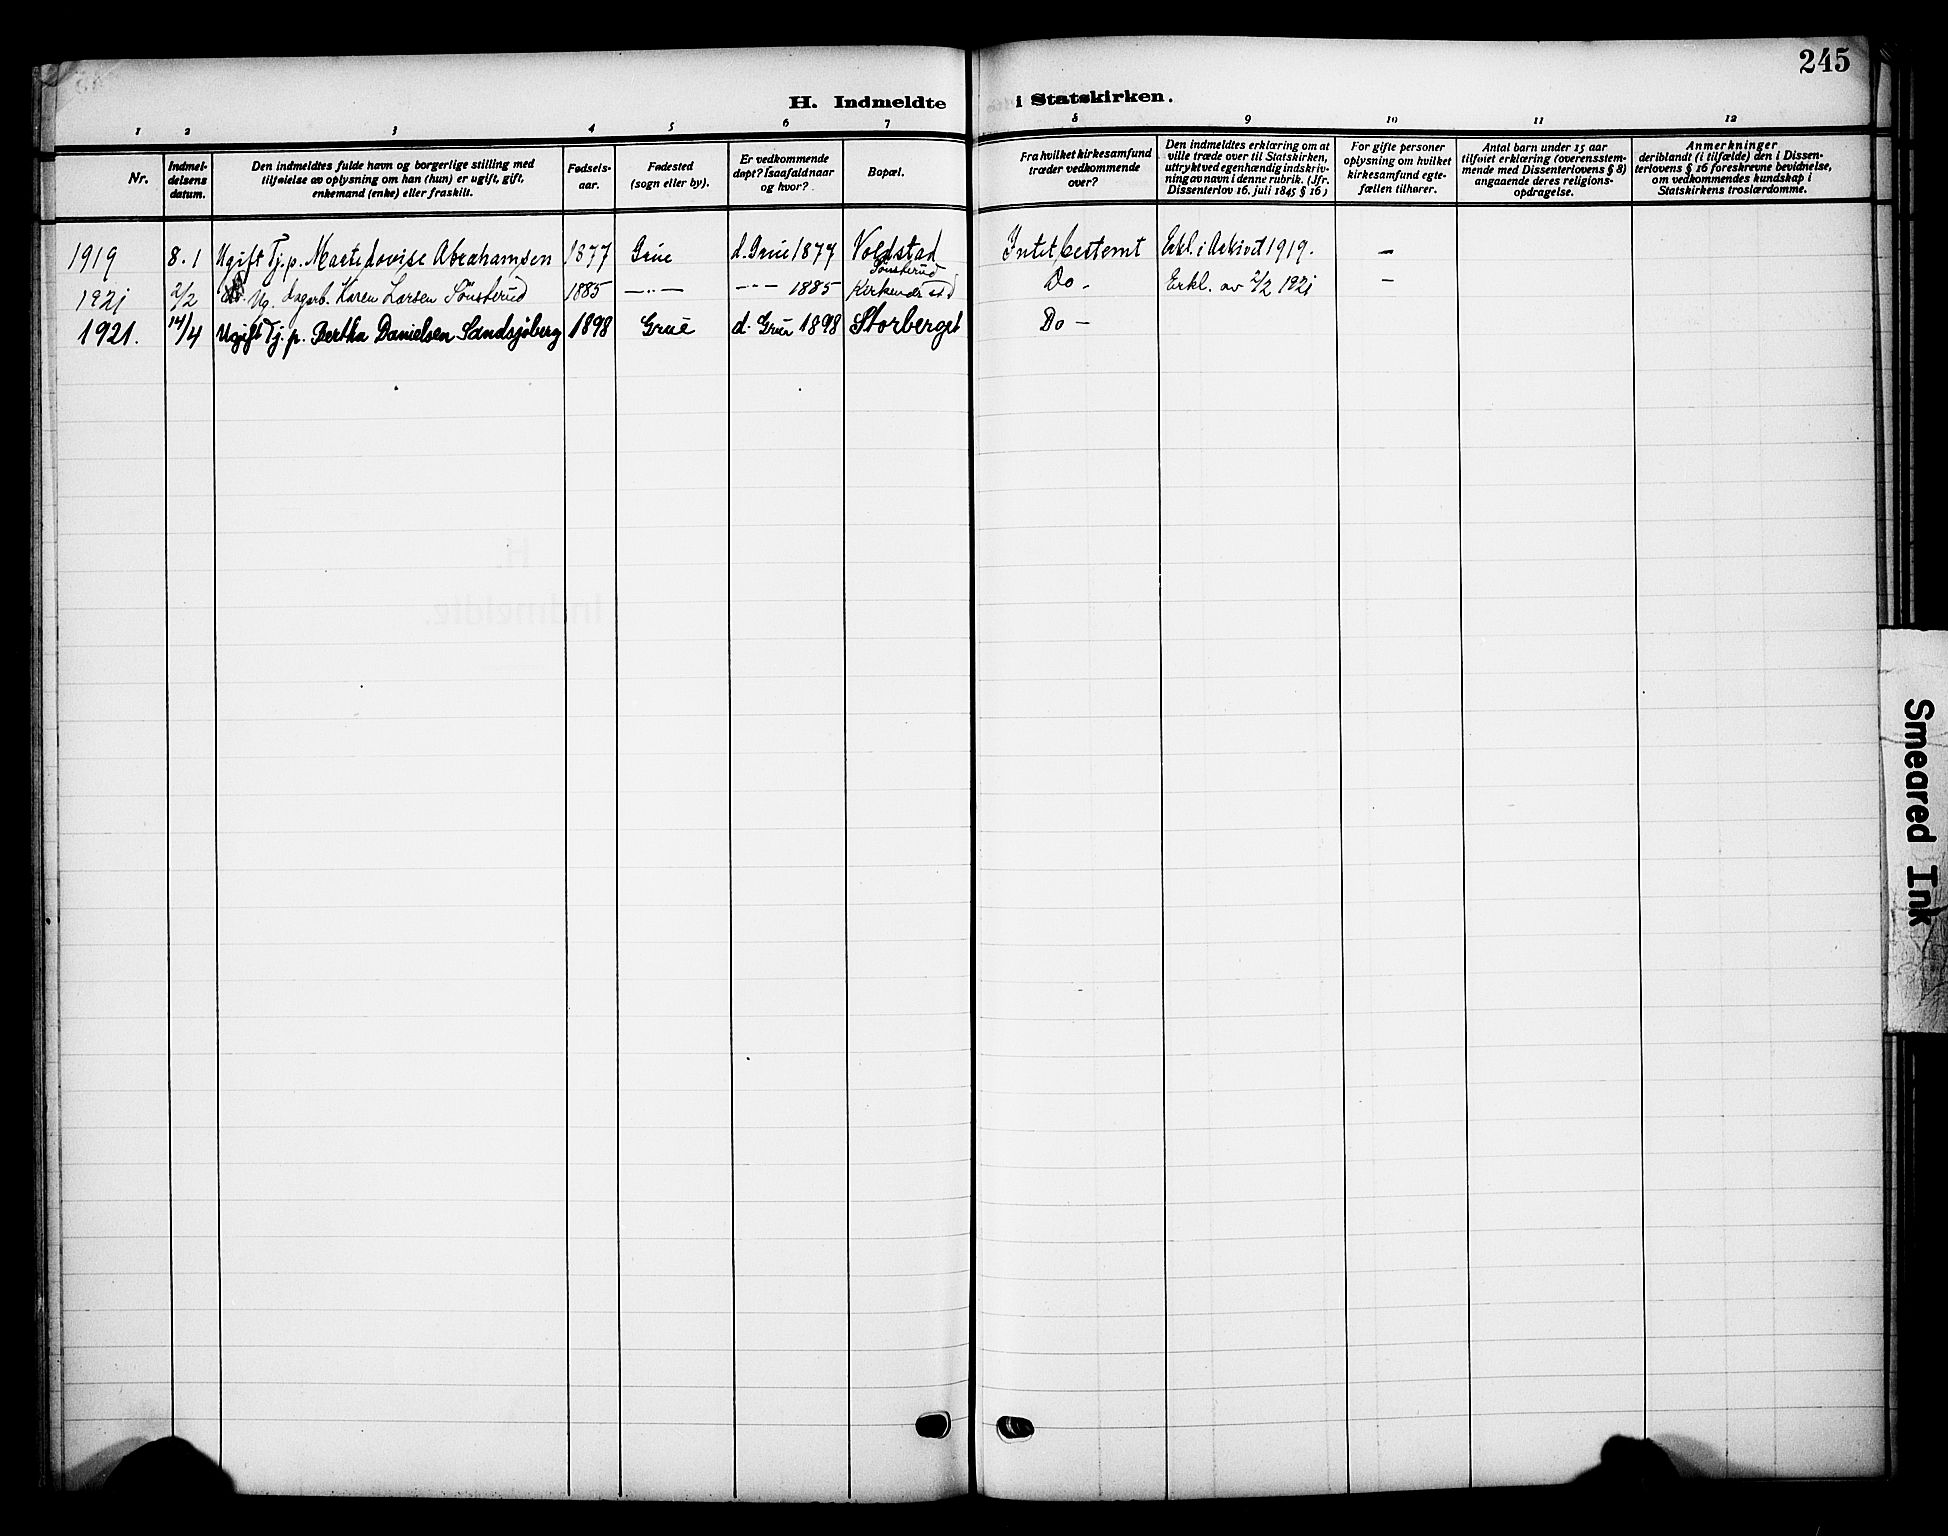 245
H. Indmeldte i Statskirken.
1 2 3 4 5 6 7 8 9 10 11 12
Nr.
Indmel-
delsens
datum.
Den indmeldtes fulde havn og borgerlige stilling med
tilføielse av oplysning om han (hun) er ugift, gift,
enkemand (enke) eller fraskilt.
Fødsels-
aar.
Fødested
(sogn eller by).
Er vedkommende
døpt? Isaafald naar
og hvor?
Bopæl.
Fra hvilket kirkesamfund
træder vedkommende
over?
Den indmeldtes erklæring om at
ville træde over til Statskirken,
uttrykt ved egenhændig indskriv-
ning av navn i denne rubrik. (Jfr.
Dissenterlov 16. juli 1845 § 16)
For gifte personer
oplysning om hvilket
kirkesamfund egte-
fællen tilhører.
Antal barn under 15 aar
tilføiet erklæring (overensstem-
mende med Dissenterlovens § 8)
angaaende deres religions-
opdragelse.
Anmerkninger
deriblandt (i tilfælde) den i Dissen-
terlovens § 16 foreskrevne bevidnelse,
om vedkommendes kundskap i
Statskirkens troslærdomme.
1919 8.1 Ugift Tj.p. Marte Lovise Abrahamsen 1877 Grue d. Grue 1877 Voldstad Intet bestemt Erkl. i Arkivet 1919. —
Sønsterud
1921 2/2 Ug. dagarb. Karen Larsen Sønsterud 1885 —"— —"— 1885 Do - Erkl. av 2/2 1921 —
1921. 14/4 Ugift Tj. p. Bertha Danielsen Sandsjøberg 1898 Grue d. Grue 1898 Storberget Do —
Smeared Ink